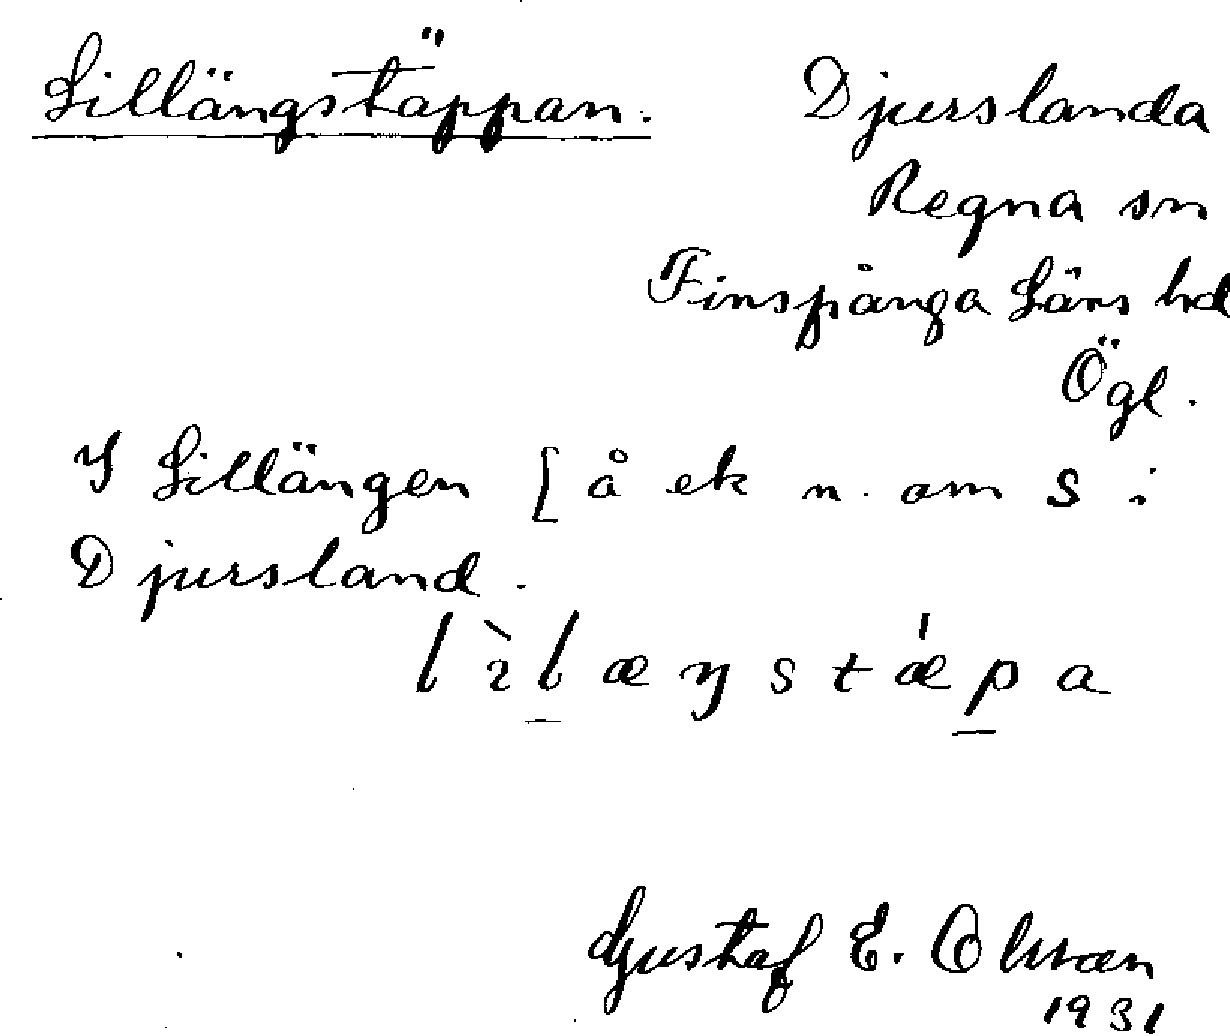 Lillängstäppan. Djurslanda
Regna sn
Finspånga Läns hd
Ögl.
I Lillängen [å ek n. om S i
Djursland.
lìlæŋstǽpa
Gustaf E. Olsson
1931